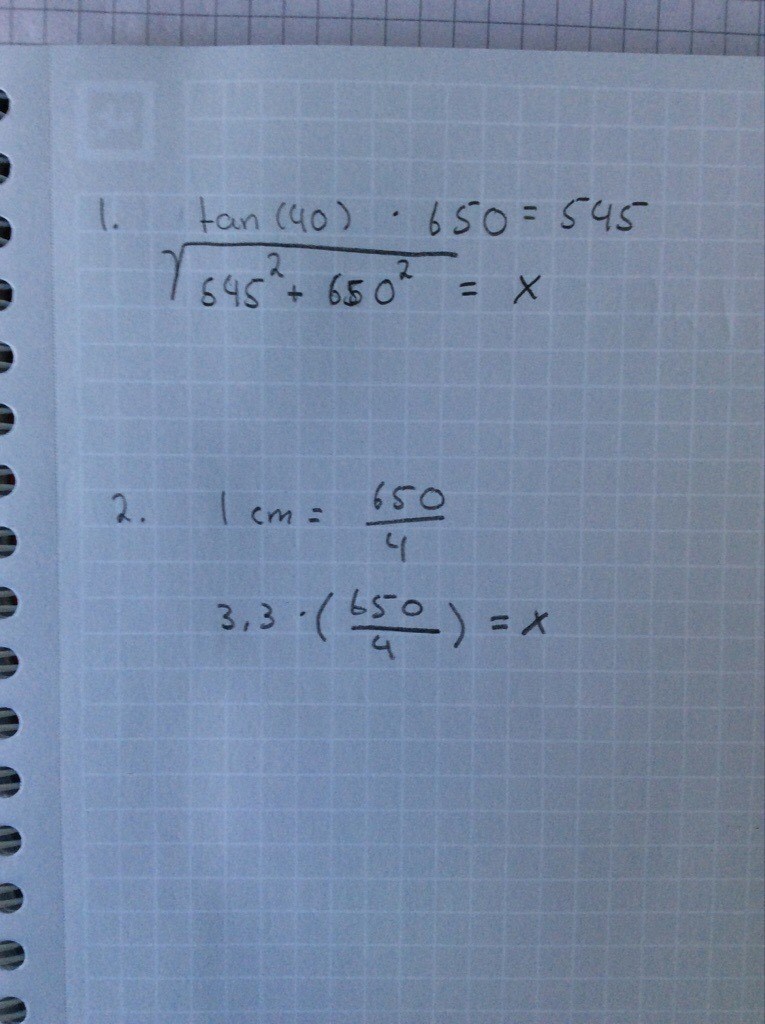 1. tan (40) · 650 = 545
√(545² + 650²) = x
2. 1 cm = 650/4
3,3 · (650/4) = x